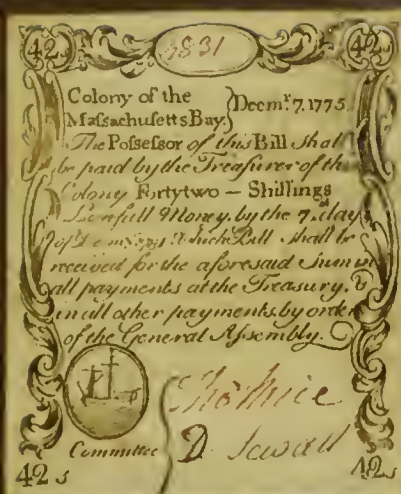 42 s 3831 42 s
Colony of the
Maſsachusetts Bay. } Decmr. 7. 1775.
The Poſseſsor of this Bill ſhall
be paid by the Treaſurer of the
Colony Fortytwo — Shillings
Lawfull Money, by the 7. day
of Which Bill ſhall be
received for the aforesaid Sum in
all payments at the Treaſury, &
in all other payments by order
of the General Aſsembly.
Committee
D Sewall
42 s 42 s